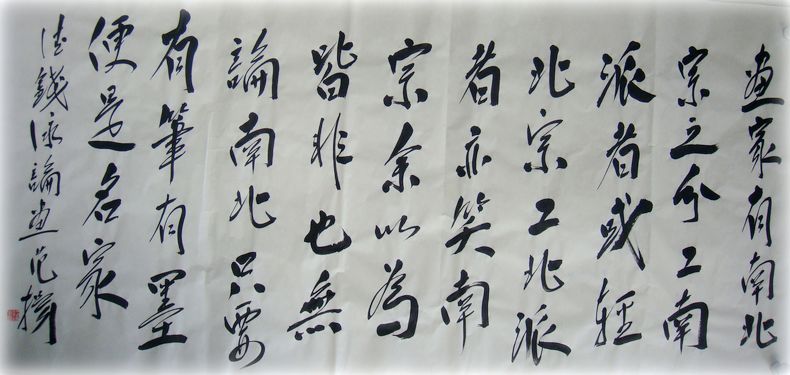 畫家有南北
宗之分工南
派者或輕
北宗工北派
者亦笑南
宗余以為
皆非也無
論南北只要
有筆有墨
便是名家
清錢泳論畫范擀